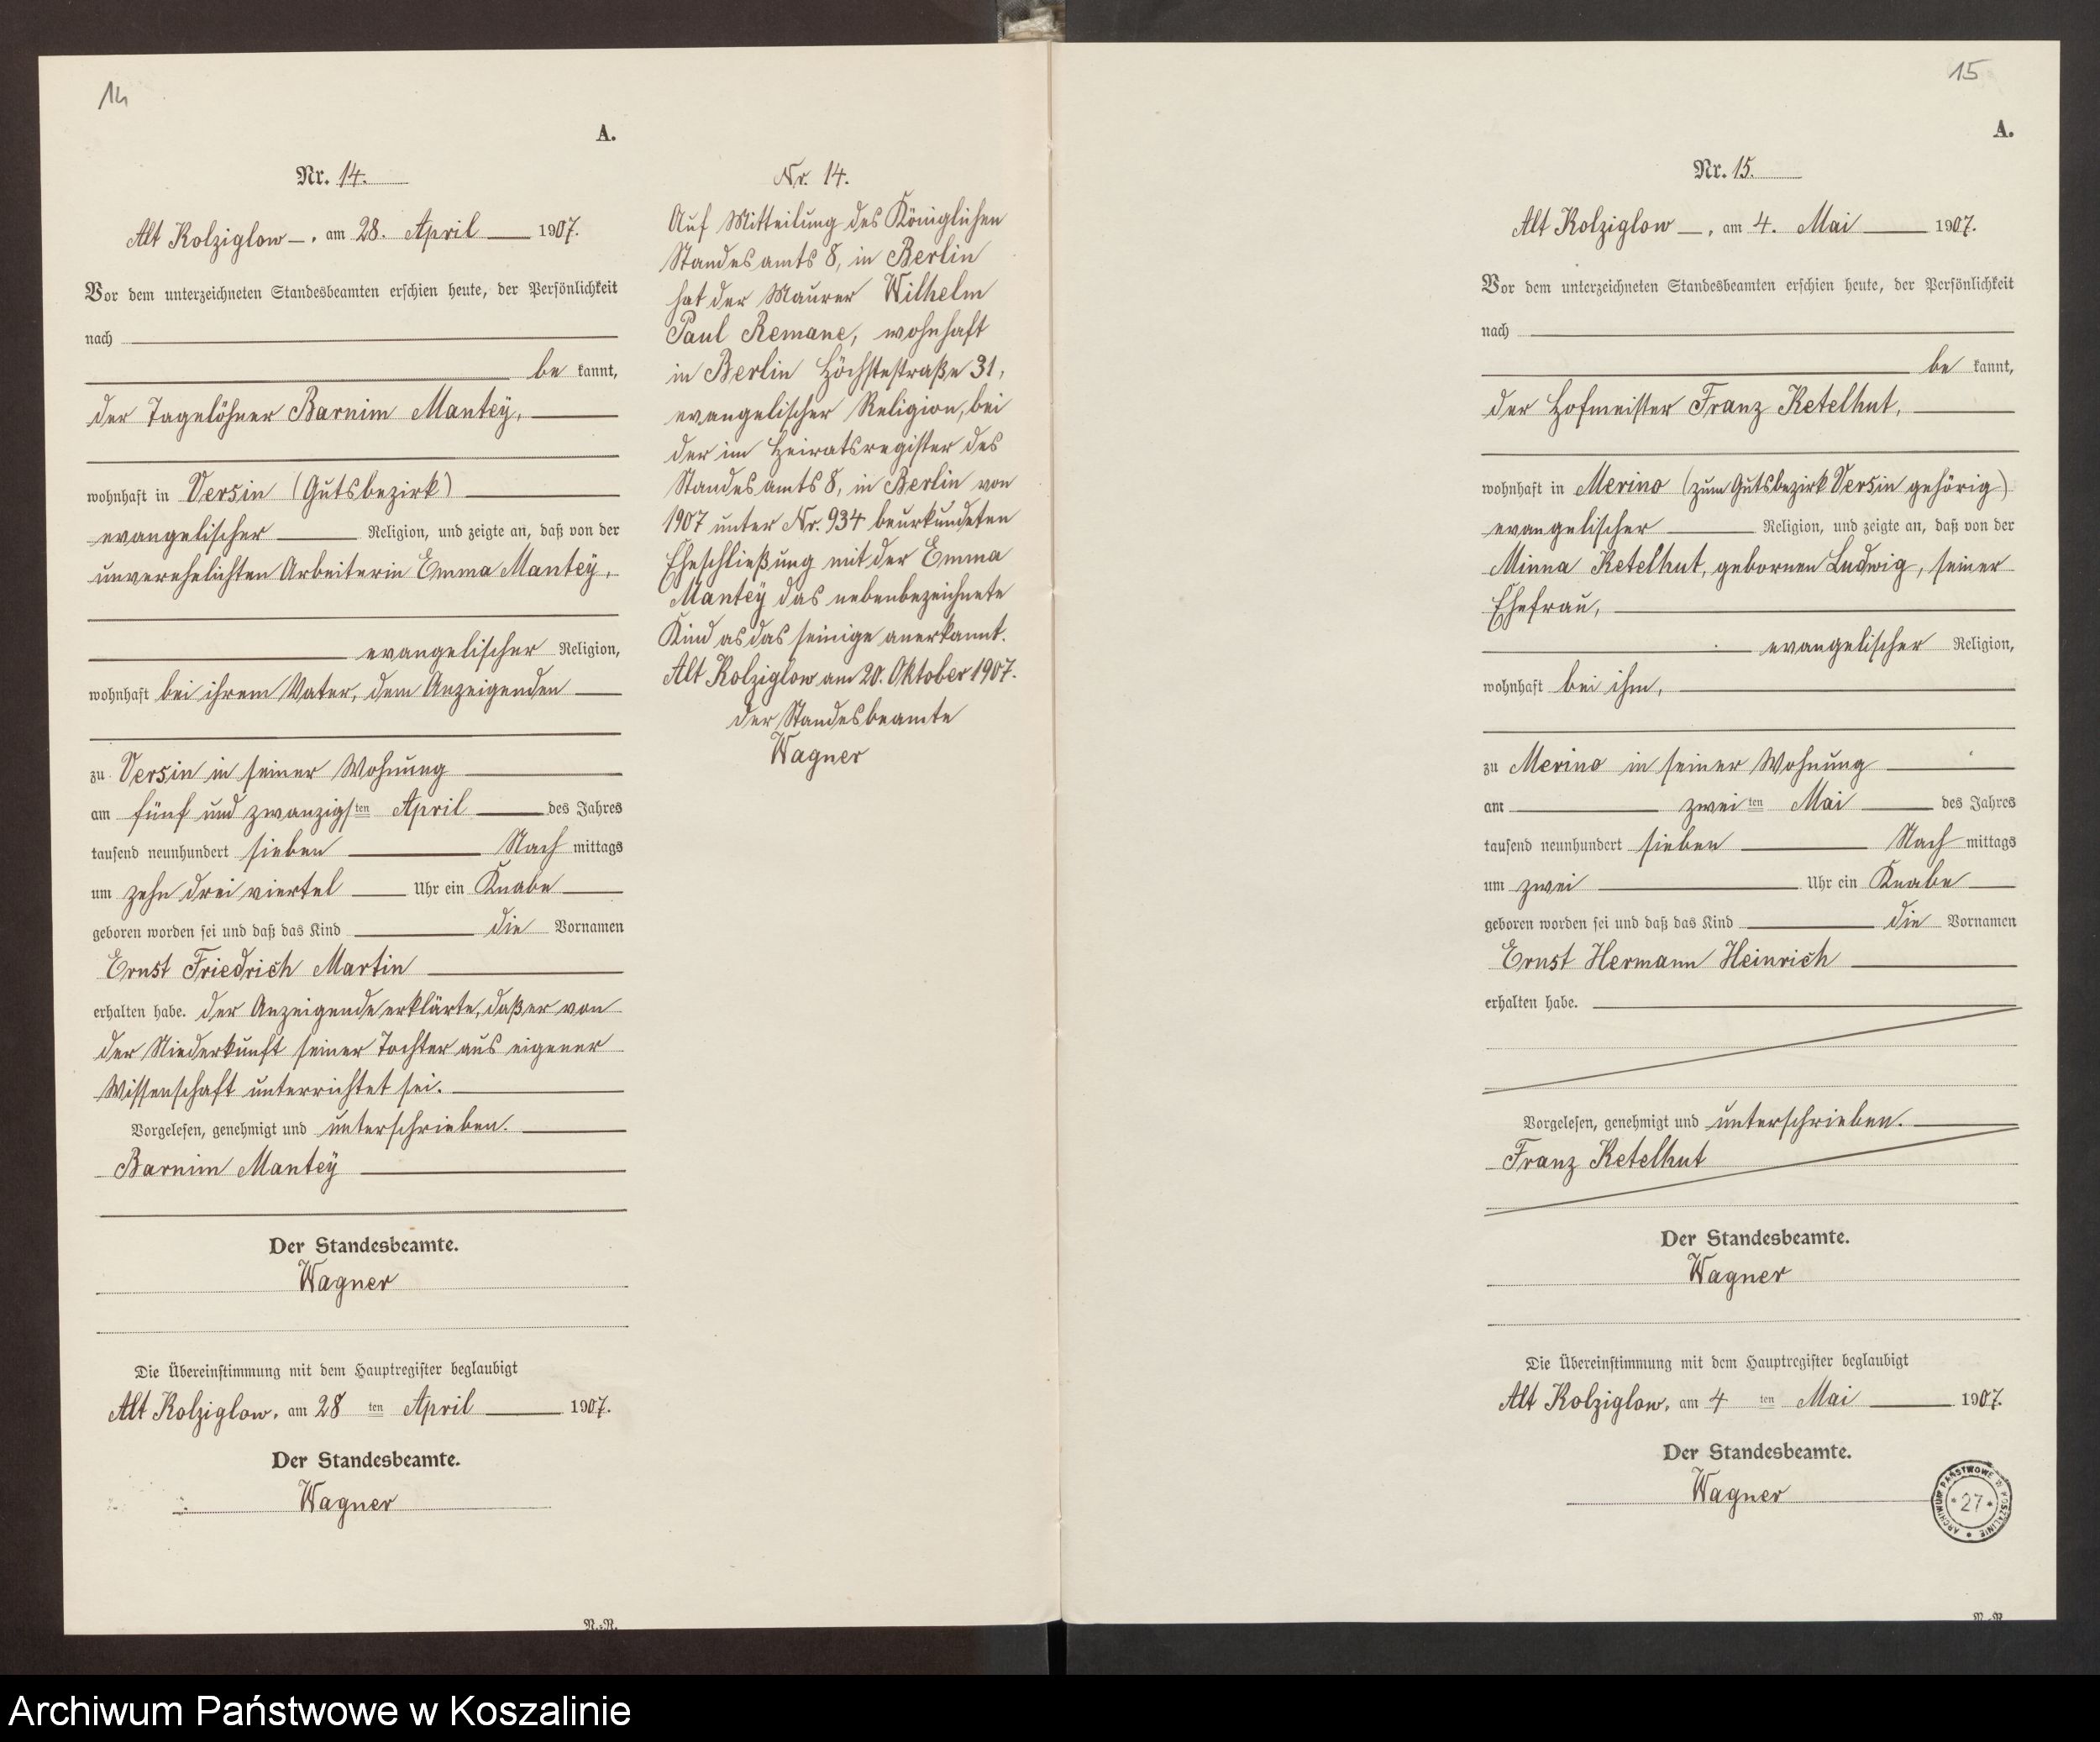 14
A.
Nr. 14.
Alt Kolziglow, am 28. April 1907.
Vor dem unterzeichneten Standesbeamten erschien heute, der Persönlichkeit
nach
be kannt,
der Tagelöhner Barnim Mantey,
wohnhaft in Versin (Gutsbezirk)
evangelischer Religion, und zeigte an, daß von der
unverehelichten Arbeiterin Emma Mantey,
evangelischer Religion,
wohnhaft bei ihrem Vater, dem Anzeigenden
zu Versin in seiner Wohnung
am fünf und zwanzigsten April des Jahres
tausend neunhundert sieben Nach mittags
um zehn drei viertel Uhr ein Knabe
geboren worden sei und daß das Kind die Vornamen
Ernst Friedrich Martin
erhalten habe. Der Anzeigende erklärte, daß er von
der Niederkunft seiner Tochter aus eigener
Wissenschaft unterrichtet sei.
Vorgelesen, genehmigt und unterschrieben.
Barnim Mantey
Der Standesbeamte.
Wagner
Die Übereinstimmung mit dem Hauptregister beglaubigt
Alt Kolziglow, am 28 ten April 1907.
Der Standesbeamte.
Wagner
N.-R.
Nr. 14.
Auf Mitteilung des Königlichen
Standesamts 8, in Berlin
hat der Maurer Wilhelm
Paul Remane, wohnhaft
in Berlin Höchstestraße 31,
evangelischer Religion, bei
der im Heiratsregister des
Standesamts 8, in Berlin von
1907 unter Nr. 934 beurkundeten
Eheschließung mit der Emma
Mantey das nebenbezeichnete
Kind as das seinige anerkannt.
Alt Kolziglow am 20. Oktober 1907.
Der Standesbeamte
Wagner
15
A.
Nr. 15.
Alt Kolziglow, am 4. Mai 1907.
Vor dem unterzeichneten Standesbeamten erschien heute, der Persönlichkeit
nach
be kannt,
der Hofmeister Franz Ketelhut,
wohnhaft in Merino (zum Gutsbezirk Versin gehörig)
evangelischer Religion, und zeigte an, daß von der
Minna Ketelhut, gebornen Ludwig, seiner
Ehefrau,
evangelischer Religion,
wohnhaft bei ihm,
zu Merino in seiner Wohnung
am zwei ten Mai des Jahres
tausend neunhundert sieben Nach mittags
um zwei Uhr ein Knabe
geboren worden sei und daß das Kind die Vornamen
Ernst Hermann Heinrich
erhalten habe.
Vorgelesen, genehmigt und unterschrieben.
Franz Ketelhut
Der Standesbeamte.
Wagner
Die Übereinstimmung mit dem Hauptregister beglaubigt
Alt Kolziglow, am 4 ten Mai 1907.
Der Standesbeamte.
Wagner
ARCHIWUM PAŃSTWOWE W KOSZALINIE
* 27 *
N.-R.
Archiwum Państwowe w Koszalinie